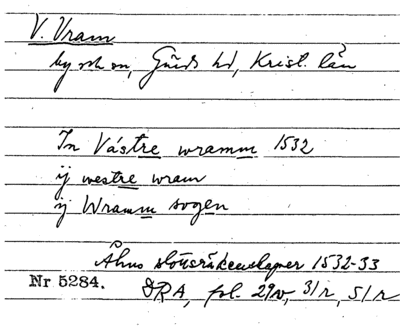 V. Vram
by och sn, Gärds hd, Krist. län
In Västre wramm 1532
ij westre wram
ij Wramm sogen
Åhus slotsräkenskaper 1532-33
Nr 5284.
DRA, fol. 29v, 31r, 51r